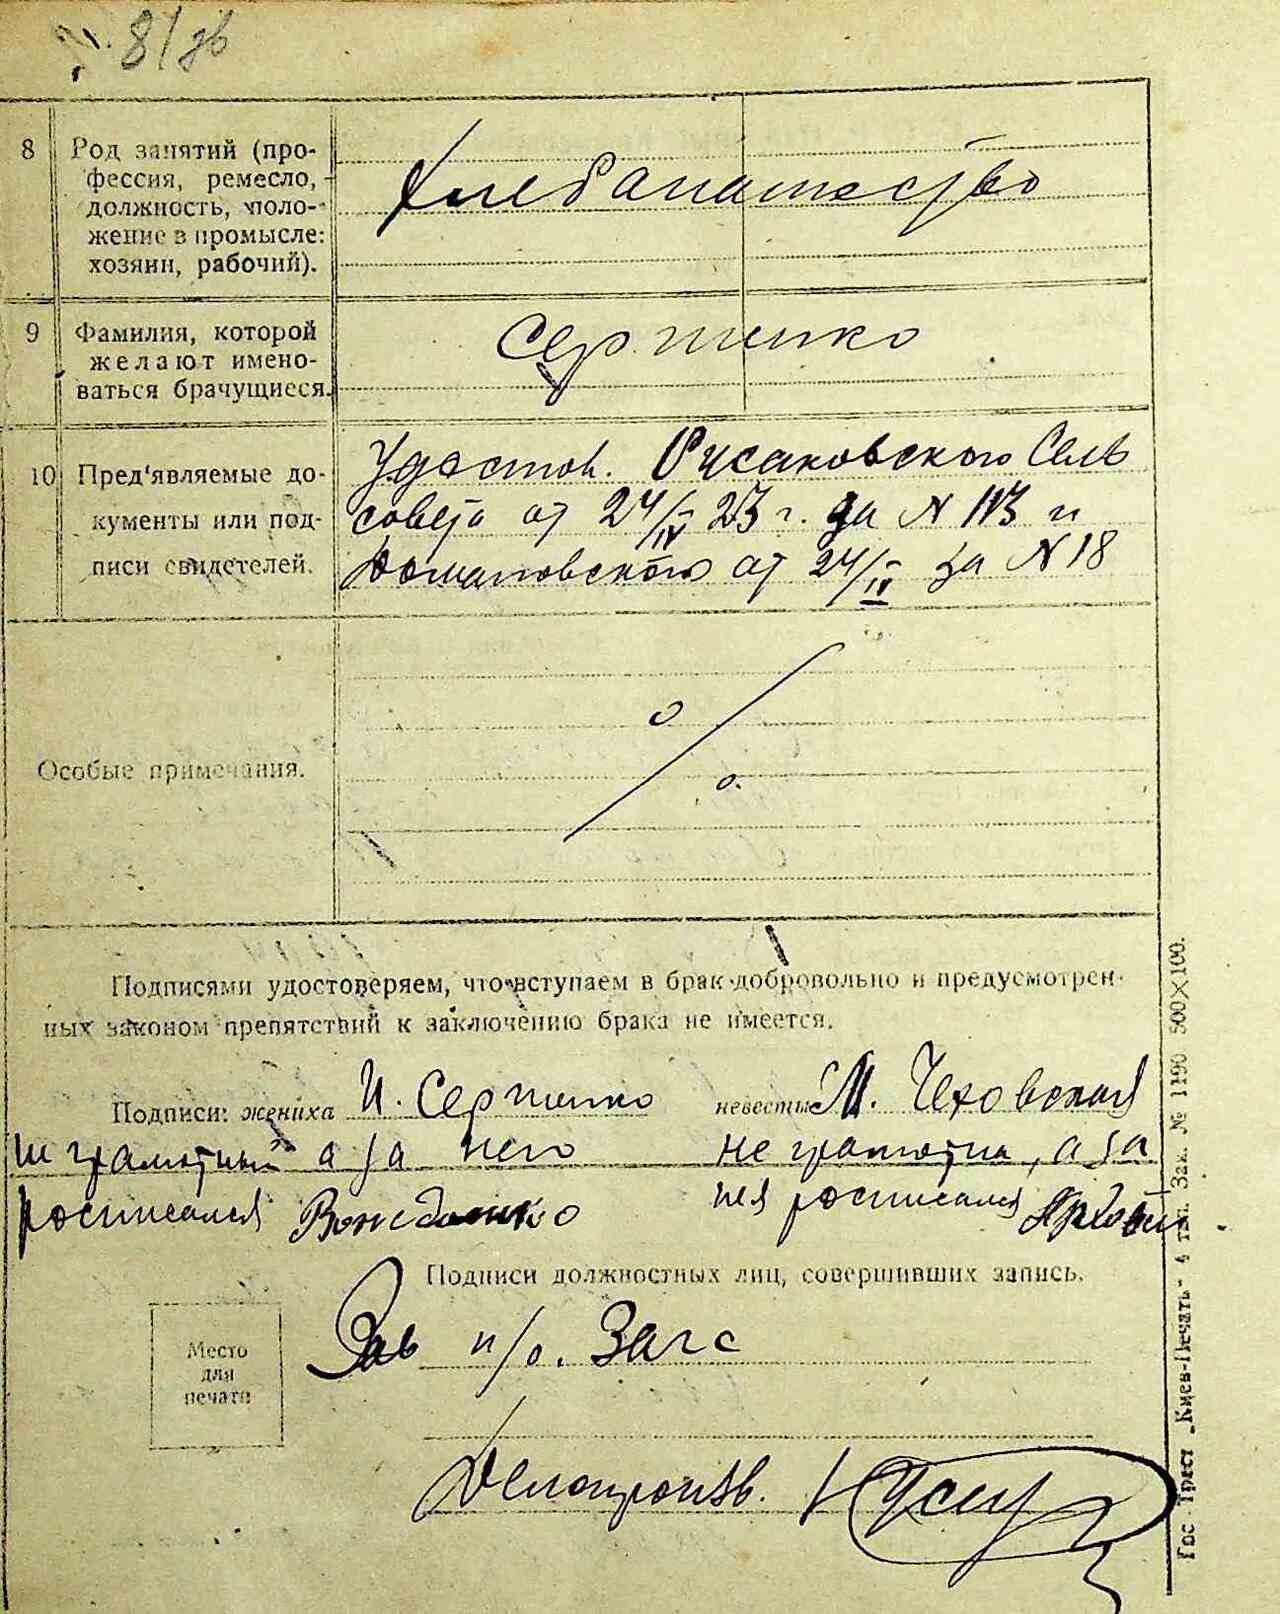 8/зв
8 Род занятий (про-
фессия, ремесло,
должность, поло-
жение в промысле:
хозяин, рабочий).
Хлебопашество
9 Фамилия, которой
желают имено-
ваться брачущиеся.
10 Пред'являемые до-
кументы или под-
писи свидетелей.
Удостов. Русаковского Сель
совета от 24/IV 23 г. за N 113 и
от 24/IV за N 18
Особые примечания.
Подписями удостоверяем, что вступаем в брак добровольно и предусмотрен-
ных законом препятствий к заключению брака не имеется.
Подписи: жениха И. невесты М. Чеховская
не грамотный а за него
росписался
не грамотна, а за
нея росписался
Подписи должностных лиц, совершивших запись.
Место
для
печати
Зав п/о. Загс
Делопроизв.
Гос. Трест „Киев-Печать“ 4 тип. Зак. № 1190 500×100.